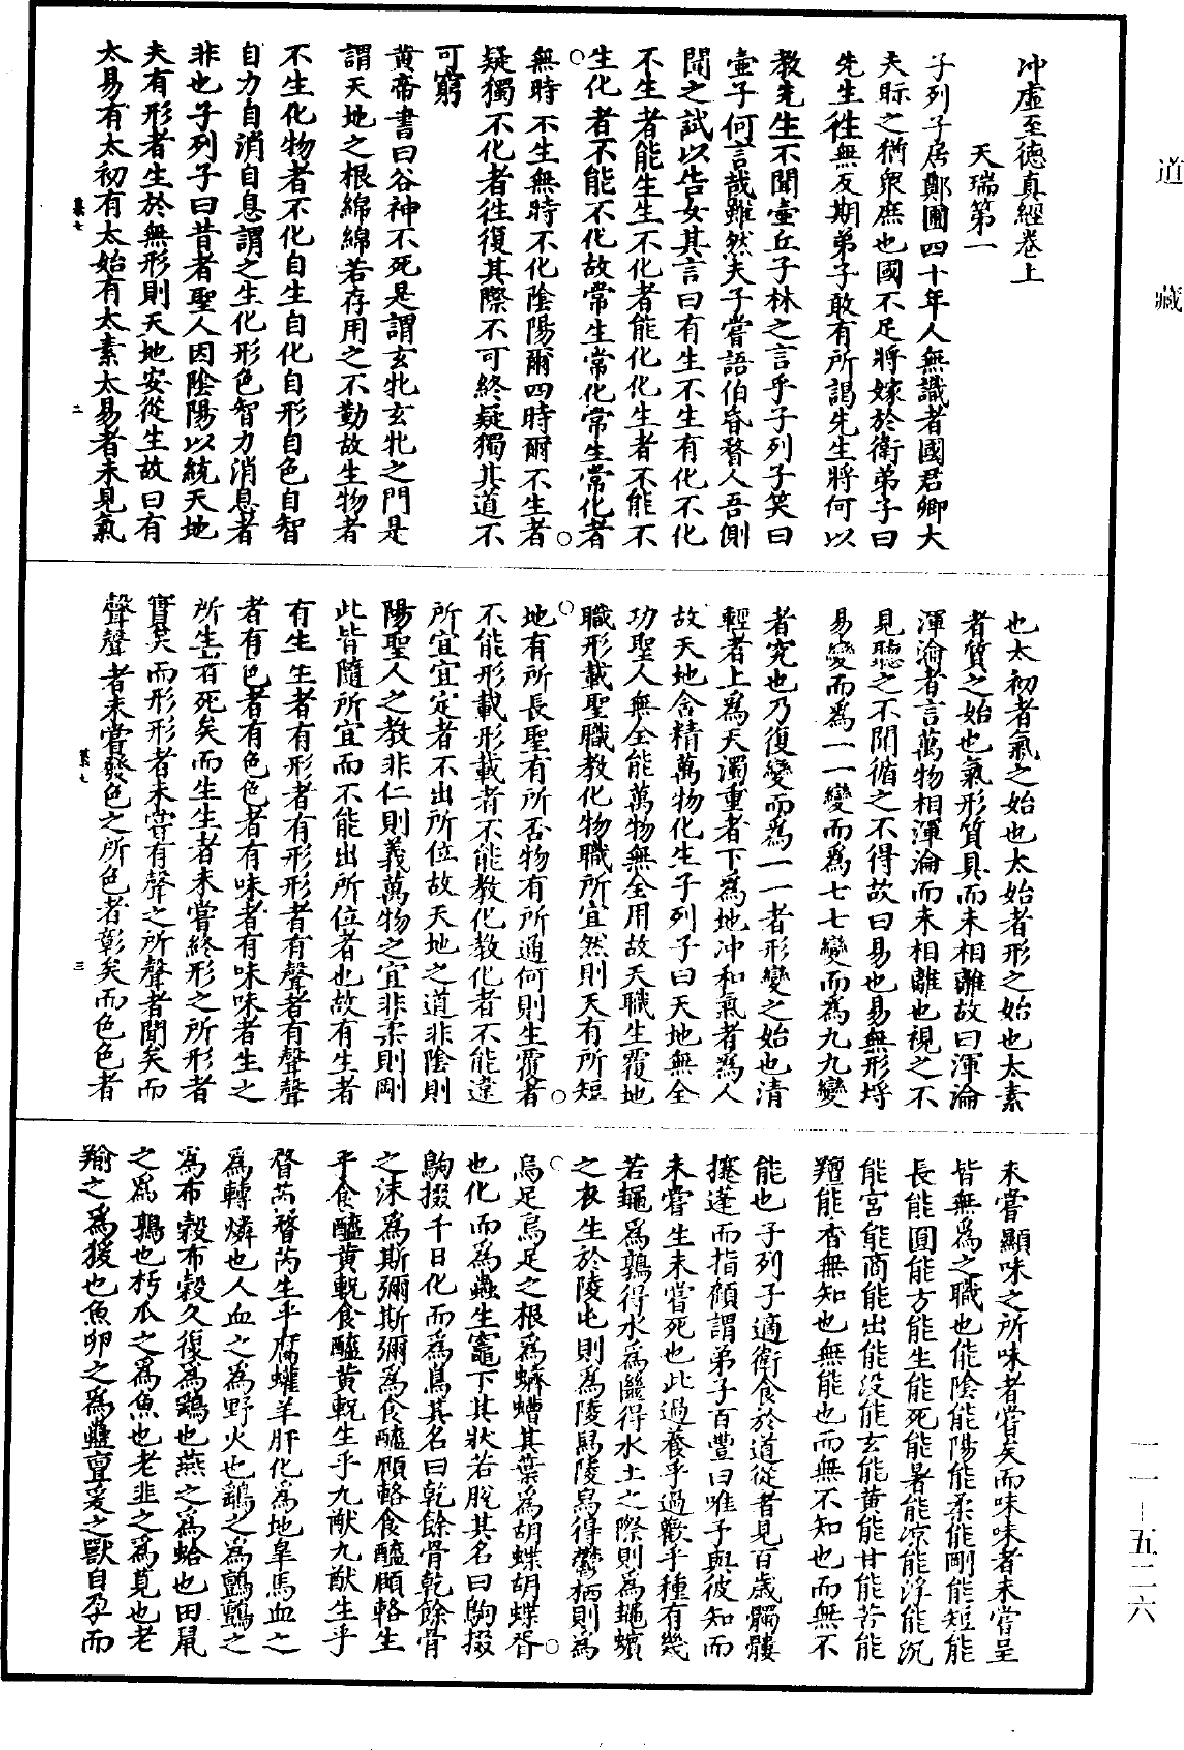 道藏
冲虛至德真經卷上
天瑞第一
子列子居鄭圃四十年人無識者國君卿大
夫眎之猶衆庶也國不足將嫁於衛弟子曰
先生往無反期弟子敢有所謁先生將何以
教先生不聞壷丘子林之言乎子列子笑曰
壷子何言哉雖然夫子嘗語伯昏瞀人吾側
聞之試以告女其言曰有生不生有化不化
不生者能生生不化者能化化生者不能不
生化者不能不化故常生常化常生常化者
無時不生無時不化陰陽爾四時爾不生者
疑獨不化者往復其際不可終疑獨其道不
可窮
黄帝書曰谷神不死是謂玄牝玄牝之門是
謂天地之根綿綿若存用之不勤故生物者
不生化物者不化自生自化自形自色自智
自力自消自息謂之生化形色智力消息者
非也子列子曰昔者聖人因陰陽以統天地
夫有形者生於無形則天地安從生故曰有
太易有太初有太始有太素太易者未見氣
二
也太初者氣之始也太始者形之始也太素
者質之始也氣形質具而未相離故曰渾淪
渾淪者言萬物相渾淪而未相離也視之不
見聽之不聞循之不得故曰易也易無形埒
易變而爲一一變而爲七七變而爲九九變
者究也乃復變而爲一一者形變之始也清
輕者上爲天濁重者下爲地冲和氣者爲人
故天地含精萬物化生子列子曰天地無全
功聖人無全能萬物無全用故天職生覆地
職形載聖職教化物職所宜然則天有所短
地有所長聖有所否物有所通何則生覆者
不能形載形載者不能教化教化者不能違
所宜宜定者不出所位故天地之道非陰則
陽聖人之教非仁則義萬物之宜非柔則剛
此皆隨所宜而不能出所位者也故有生者
有生生者有形者有形形者有聲者有聲聲
者有色者有色色者有味者有味味者生之
所生者死矣而生生者未嘗終形之所形者
實矣而形形者未嘗有聲之所聲者聞矣而
聲聲者未嘗發色之所色者彰矣而色色者
三
未嘗顯味之所味者嘗矣而味味者未嘗呈
皆無爲之職也能陰能陽能柔能剛能短能
長能圓能方能生能死能暑能凉能浮能沉
能宫能商能出能没能玄能黄能甘能苦能
羶能香無知也無能也而無不知也而無不
能也子列子適衛食於道從者見百歲髑髏
攓蓬而指顧謂弟子百豐曰唯予與彼知而
未嘗生未嘗死也此過養乎過歡乎種有幾
若䵷爲鶉得水爲㡭得水土之際則爲䵷蠙
之衣生於陵屯則爲陵舄陵舄得鬱栖則爲
烏足烏足之根爲蠐螬其葉爲胡蝶胡蝶胥
也化而爲蟲生竈下其狀若脫其名曰駒掇
駒掇千日化而爲鳥其名曰乾餘骨乾餘骨
之沫爲斯彌斯彌爲食醯頤輅食醯頤輅生
乎食醯黄軦食醯黄軦生乎九猷九猷生乎
瞀芮瞀芮生乎腐蠸羊肝化爲地皐馬血之
爲轉燐也人血之爲野火也鷂之爲鸇鸇之
爲布榖布榖久復爲鷂也燕之爲蛤也田鼠
之爲鶉也朽瓜之爲魚也老韭之爲莧也老
羭之爲猨也魚卵之爲蟲亶爰之獸自孕而
一一-五二六